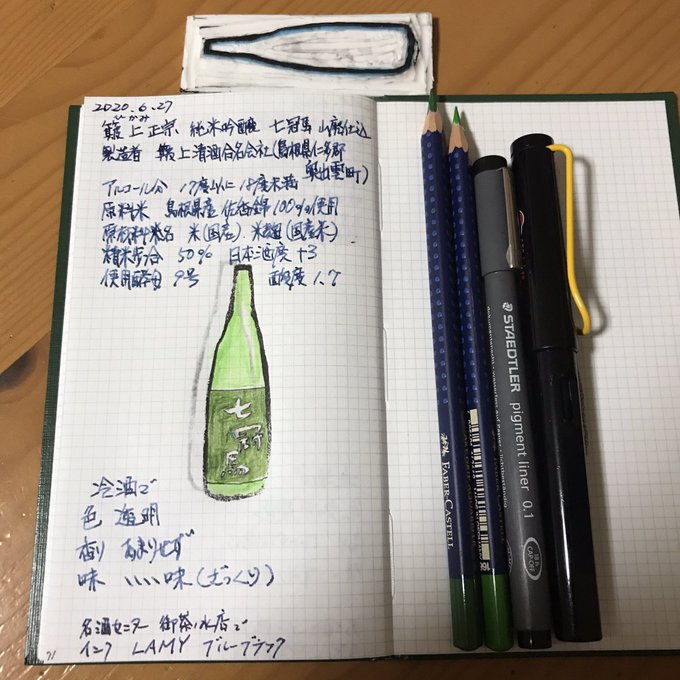 2020.6.27
簸上正宗 純米吟醸 七冠馬 山廃仕込
ひかみ
製造者 簸上清酒合名会社(島根県仁多郡
奥出雲町)
アルコール分 17度以上 18度未満
原料米 島根県産 佐香錦 100%使用
原材料米名 米(国産) 米麹(国産米)
精米歩合 50% 日本酒度 +3
使用酵母 9号 酸度 1.7
七
冠
馬
冷酒で
色 透明
香り あまりせず
味 いい味(ざっくり)
名酒センター 御茶ノ水店で
インク LAMY ブルーブラック
71
FABER-CASTELL
STAEDTLER pigment liner 0.1
CAP-OFF